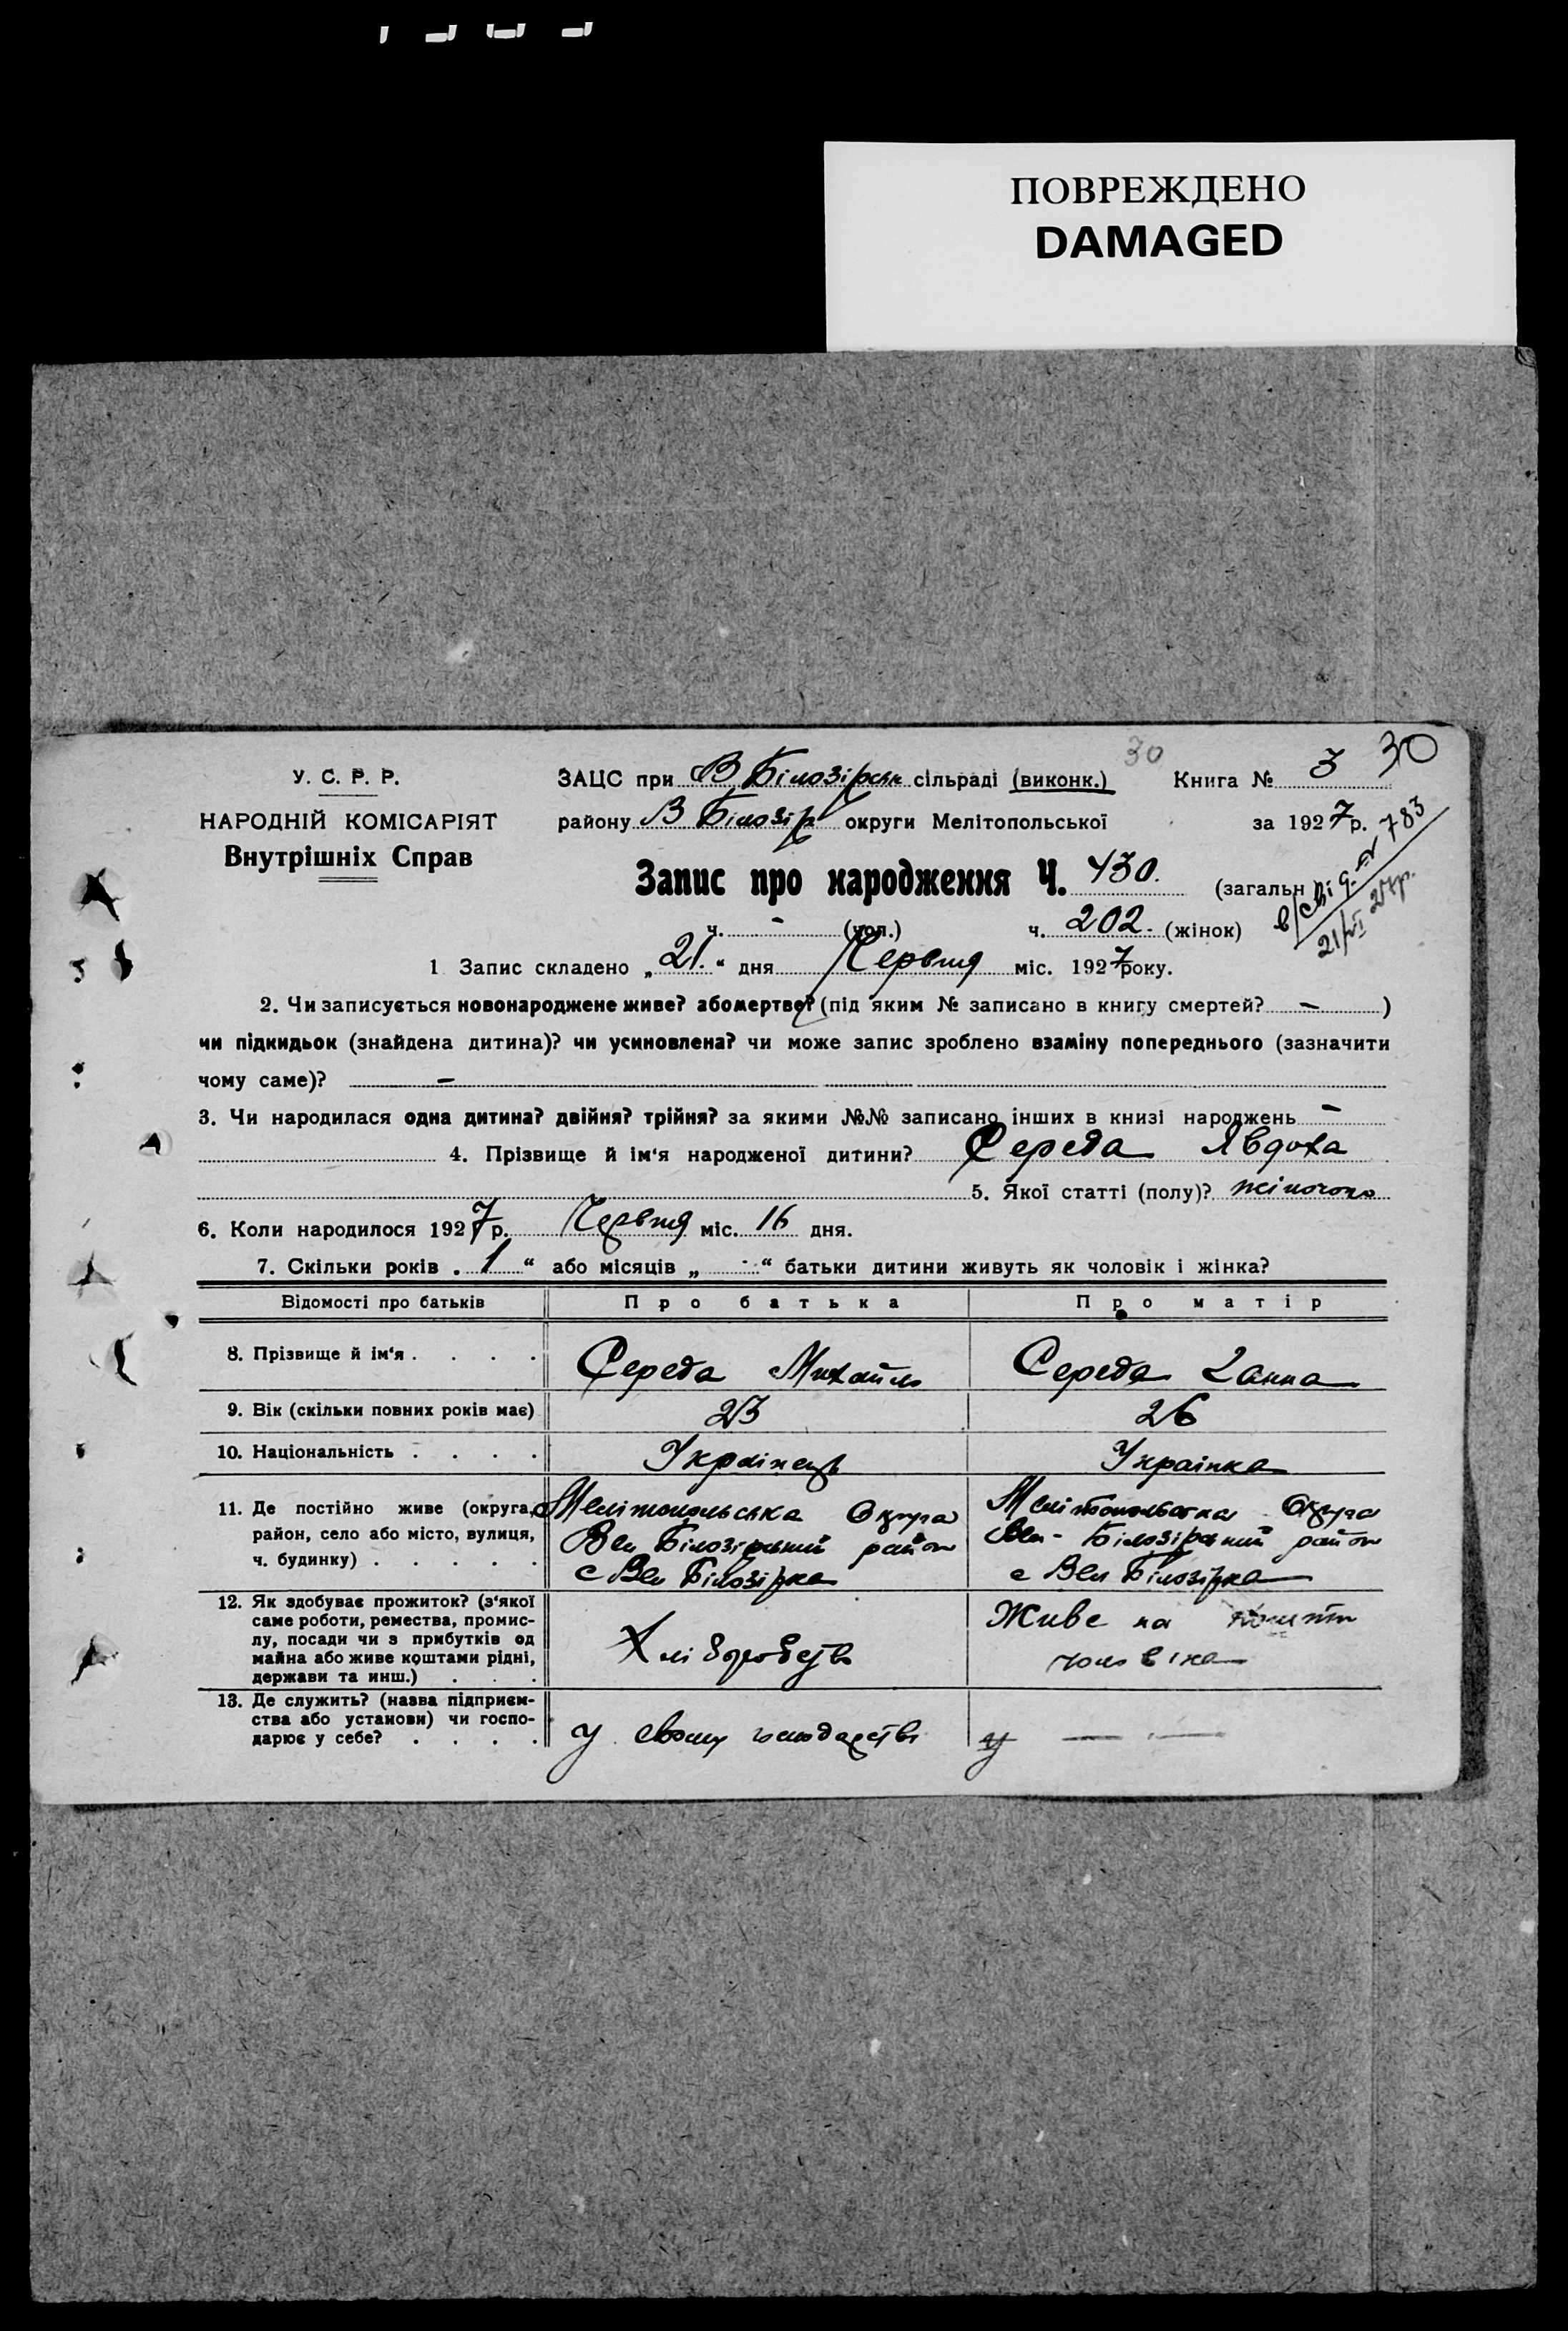 ПОВРЕЖДЕНО
DAMAGED
30
У. С. Р. Р.
НАРОДНІЙ КОМІСАРІЯТ
Внутрішніх Справ
ЗАЦС при В Білозірськ сільраді (виконк.) Книга № 3 30
району В Білозір округи Мелітопольської за 1927 р.
Запис про народження Ч. 430. (загальн
в/свід. № 783
21/VI 27р.
ч. - (чол.) ч. 202. (жінок)
1 Запис складено „ 21. “ дня Червня міс. 1927 року.
2. Чи записується новонароджене живе? або мертве? (під яким № записано в книгу смертей? – )
чи підкидьок (знайдена дитина)? чи усиновлена? чи може запис зроблено взаміну попереднього (зазначити
чому саме)? –
3. Чи народилася одна дитина? двійня? трійня? за якими №№ записано інших в книзі народжень –
4. Прізвище й ім‘я народженої дитини? Середа Явдоха
5. Якої статті (полу)? жіночого
6. Коли народилося 1927 р. Червня міс. 16 дня.
7. Скільки років „ 1 “ або місяців „ - “ батьки дитини живуть як чоловік і жінка?
Відомості про батьків Про батька Про матір
8. Прізвище й ім‘я . . . . Середа Михайло Середа Ганна
9. Вік (скільки повних років має) 23 26
10. Національність . . . . Українець Українка
11. Де постійно живе (округа, Мелітопольська Округа Мелітопольська Округа
район, село або місто, вулиця, Вел Білозірський район Вел - Білозірський район
ч. будинку) . . . . . с Вел Білозірка с Вел Білозірка
12. Як здобуває прожиток? (з‘якої
саме роботи, ремества, промис- Живе на кошти
лу, посади чи з прибутків од Хліборобств
майна або живе коштами рідні, чоловіка
держави та инш.) . . .
13. Де служить? (назва підприєм-
ства або установи) чи госпо-
дарює у себе? . . . . у свому господарстві у — —